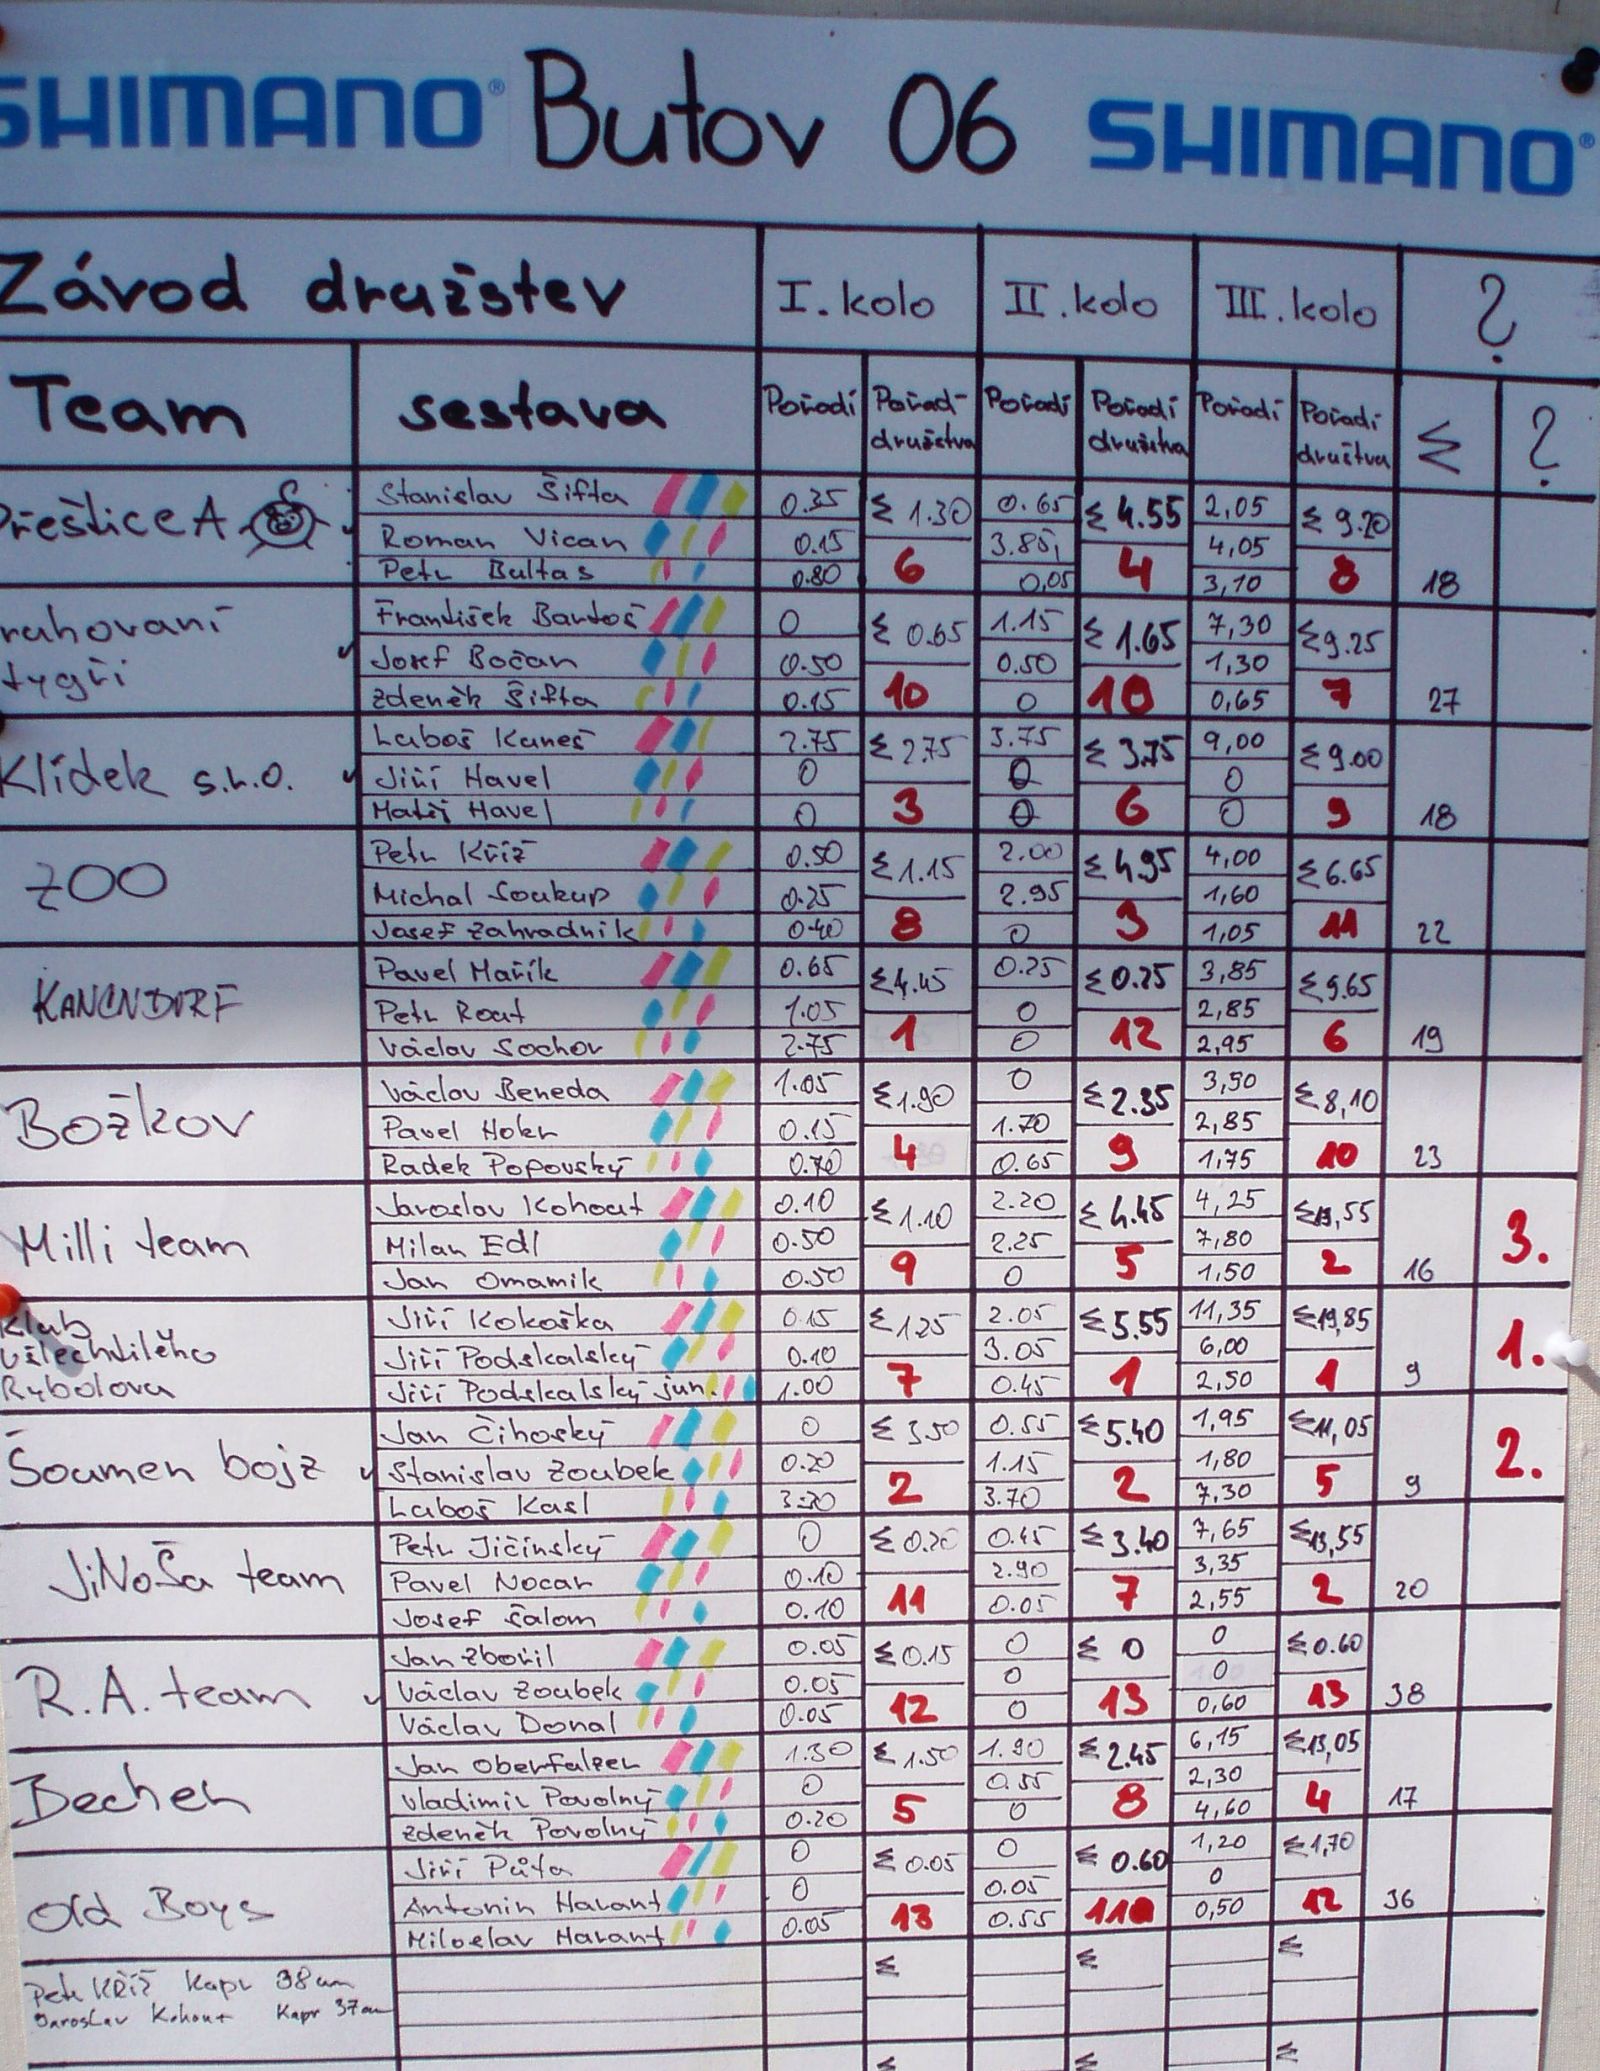 SHIMANO® Butov 06 SHIMANO®
Závod družstev I. kolo II. kolo III. kolo ?
Team sestava Pořadí Pořad- družstva Pořadí Pořadí družstva Pořadí Pořadí družtva Σ ?
Přeštice A Stanislav Šifta 0.35 Σ 1.30 0.65 Σ 4.55 2,05 Σ 9.20
Roman Vican 0.15 6 3.85, 4 4,05 8 18
Petr Bultas 0.80 0,05 3,10
ruhovaní František Bartoš 0 Σ 0.65 1.15 Σ 1.65 7,30 Σ 9.25
tygři Josef Bočan 0.50 10 0.50 10 1,30 7 27
Zdeněk Šifta 0.15 0 0,65
Klídek s.r.o. Luboš Kuneš 2.75 Σ 2.75 3.75 Σ 3.75 9,00 Σ 9.00
Jiří Havel 0 3 0 6 0 9 18
Matěj Havel 0 0 0
ZOO Petr Kříž 0.50 Σ 1.15 2.00 Σ 4.95 4,00 Σ 6.65
Michal Soukup 0.25 8 2.95 3 1,60 11 22
Josef Zahradník 0.40 0 1,05
KANCNDORF Pavel Mařík 0.65 Σ 4.45 0.25 Σ 0.25 3,85 Σ 9.65
Petr Rout 1.05 1 0 12 2,85 6 19
Václav Sochor 2.75 0 2,95
Božkov Václav Beneda 1.05 Σ 1.90 0 Σ 2.35 3,50 Σ 8,10
Pavel Hokr 0.15 4 1.70 9 2,85 10 23
Radek Popovský 0.70 0.65 1,75
Milli team Jaroslav Kohout 0.10 Σ 1.10 2.20 Σ 4.45 4,25 Σ 13,55
Milan Edl 0.50 9 2.25 5 7,80 2 16 3.
Jan Omamik 0.50 0 1,50
Klub Jiří Kokoška 0.15 Σ 1.25 2.05 Σ 5.55 11,35 Σ 19,85
ušlechtilého Jiří Podskalský 0.10 7 3.05 1 6,00 1 9 1.
Rybolovu Jiří Podskalský jun. 1.00 0.45 2,50
Šoumen bojz Jan Čihoský 0 Σ 3.50 0.55 Σ 5.40 1,95 Σ 11,05
Stanislav Zoubek 0.20 2 1.15 2 1,80 5 9 2.
Luboš Kasl 3.30 3.70 7,30
JiNoŠa team Petr Jičínský 0 Σ 0.20 0.45 Σ 3.40 7,65 Σ 13,55
Pavel Nocar 0.10 11 2.90 7 3,35 2 20
Josef Šalom 0.10 0.05 2,55
R.A. team Jan Zbořil 0.05 Σ 0.15 0 Σ 0 0 Σ 0.60
Václav Zoubek 0.05 12 0 13 0 13 38
Václav Donal 0.05 0 0,60
Becher Jan Oberfalzer 1.30 Σ 1.50 1.90 Σ 2.45 6,15 Σ 13,05
Vladimír Povolný 0 5 0.55 8 2,30 4 17
Zdeněk Povolný 0.20 0 4,60
Old Boys Jiří Půta 0 Σ 0.05 0 Σ 0.60 1,20 Σ 1,70
Antonín Harant 0 13 0.05 11 0 12 36
Miloslav Harant 0.05 0.55 0,50
Petr Kříž Kapr 38cm Σ Σ Σ
Jaroslav Kohout Kapr 37cm
Σ Σ Σ